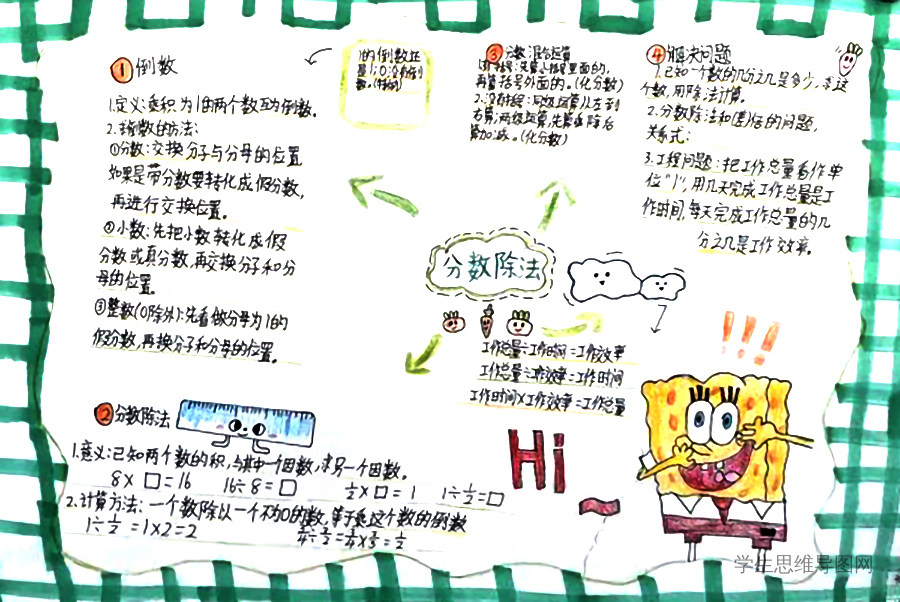 ① 倒数
1.定义:乘积为1的两个数互为倒数。
2.找倒数的方法:
①分数:交换分子与分母的位置
如果是带分数要转化成假分数,
再进行交换位置。
②小数:先把小数转化成假
分数或真分数,再交换分子和分
母的位置。
③整数(0除外):先看做分母为1的
假分数,再换分子和分母的位置。
1的倒数还
是1;0没有倒
数。(特例)
③ 分数混合运算
1.有括号:先算小括号里面的,
再算括号外面的。(化分数)
2.没有括号:同级运算从左到
右算;两级运算,先算乘除后
算加减。(化分数)
④ 解决问题
1.已知一个数的几分之几是多少,求这
个数,用除法计算。
2.分数除法和(差)倍的问题,
关系式:
3.工程问题:把工作总量看作单
位"1",用几天完成工作总量是工
作时间,每天完成工作总量的几
分之几是工作效率。
分数除法
工作总量÷工作时间=工作效率
工作总量÷工作效率=工作时间
工作时间×工作效率=工作总量
② 分数除法
1.意义:已知两个数的积,与其中一个因数,求另一个因数。
8×□=16 16÷8=□ 1/2×□=1 1÷1/2=□
2.计算方法:一个数除以一个不为0的数,等于乘这个数的倒数
1÷1/2=1×2=2
Hi
!!!
学生思维导图网